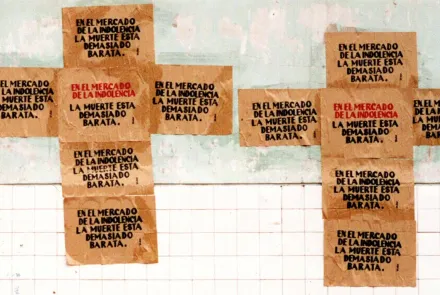 EN EL MERCADO
DE LA INDOLENCIA
LA MUERTE ESTA
DEMASIADO
BARATA. !
EN EL MERCADO
DE LA INDOLENCIA
LA MUERTE ESTA
DEMASIADO
BARATA. !
EN EL MERCADO
DE LA INDOLENCIA
LA MUERTE ESTA
DEMASIADO
BARATA. !
EN EL MERCADO
DE LA INDOLENCIA
LA MUERTE ESTA
DEMASIADO
BARATA. !
EN EL MERCADO
DE LA INDOLENCIA
LA MUERTE ESTA
DEMASIADO
BARATA. !
EN EL MERCADO
DE LA INDOLENCIA
LA MUERTE ESTA
DEMASIADO
BARATA. !
EN EL MERCADO
DE LA INDOLENCIA
LA MUERTE ESTA
DEMASIADO
BARATA. !
EN EL MERCADO
DE LA INDOLENCIA
LA MUERTE ESTA
DEMASIADO
BARATA. !
EN EL MERCADO
DE LA INDOLENCIA
LA MUERTE ESTA
DEMASIADO
BARATA. !
EN EL MERCADO
DE LA INDOLENCIA
LA MUERTE ESTA
DEMASIADO
BARATA. !
EN EL MERCADO
DE LA INDOLENCIA
LA MUERTE ESTA
DEMASIADO
BARATA. !